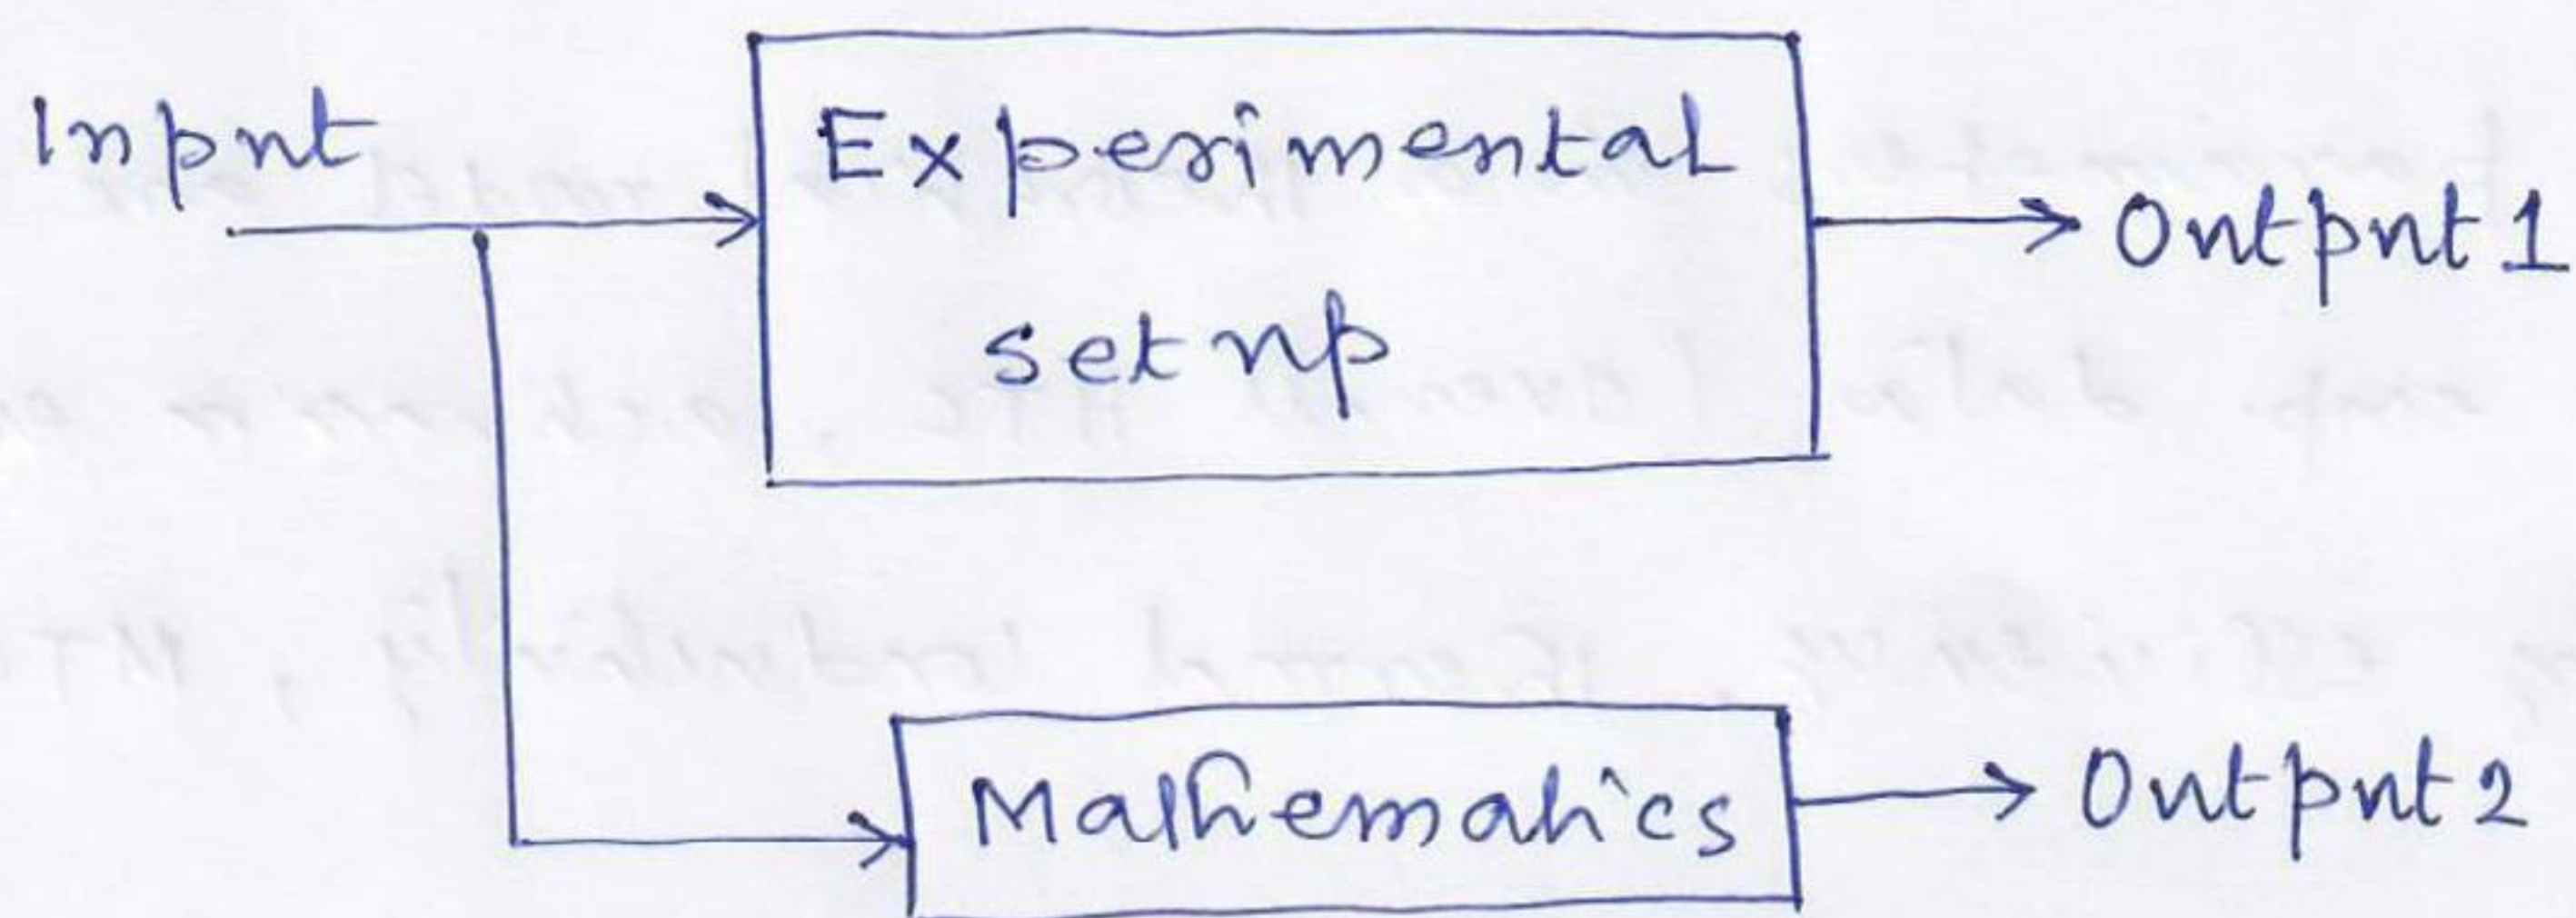 Input
Experimental
setup
Output 1
Mathematics
Output 2